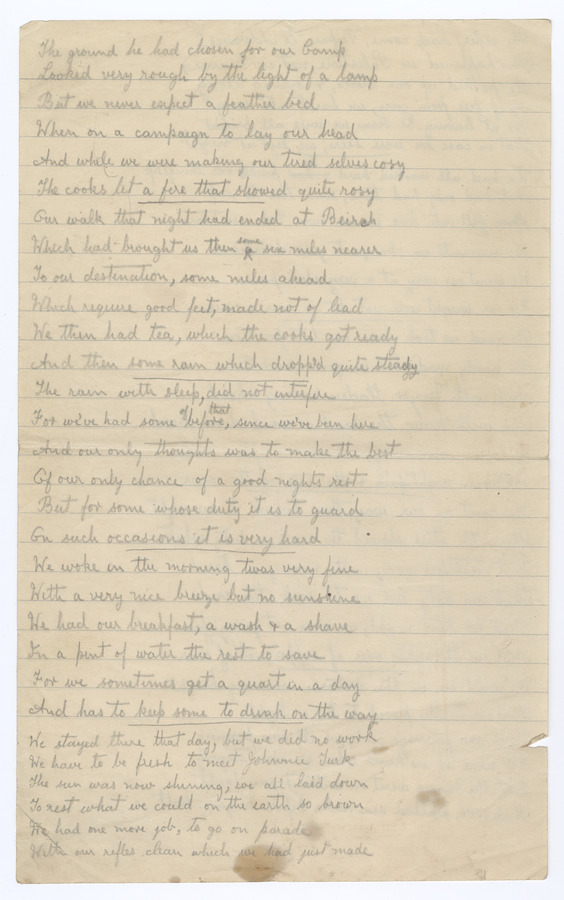 The ground he had chosen for our Camp
Looked very rough by the light of a lamp
But we never expect a feather bed
When on a campaign to lay our head
And while we were making our tired selves cosy
The cooks let a fire that showed quite rosy
Our walk that night had ended at Beirah
Which had brought us then some six miles nearer
To our destination, some miles ahead
Which require good feet, made not of lead
We then had tea, which the cooks got ready
And then some rain which dropp'd quite steady
The rain with sleep, did not interfere
For we've had some of that before, since we've been here
And our only thoughts was to make the best
Of our only chance of a good nights rest
But for some whose duty it is to guard
On such occasions it is very hard
We woke in the morning twas very fine
With a very nice breeze but no sunshine
We had our breakfast, a wash & a shave
In a pint of water the rest to save
For we sometimes get a quart in a day
And has to keep some to drink on the way
We stayed there that day, but we did no work
We have to be fresh to meet Johnnie Turk
The sun was now shining, we all laid down
To rest what we could on the earth so brown
We had one more job, to go on parade
With our rifles clean which we had just made